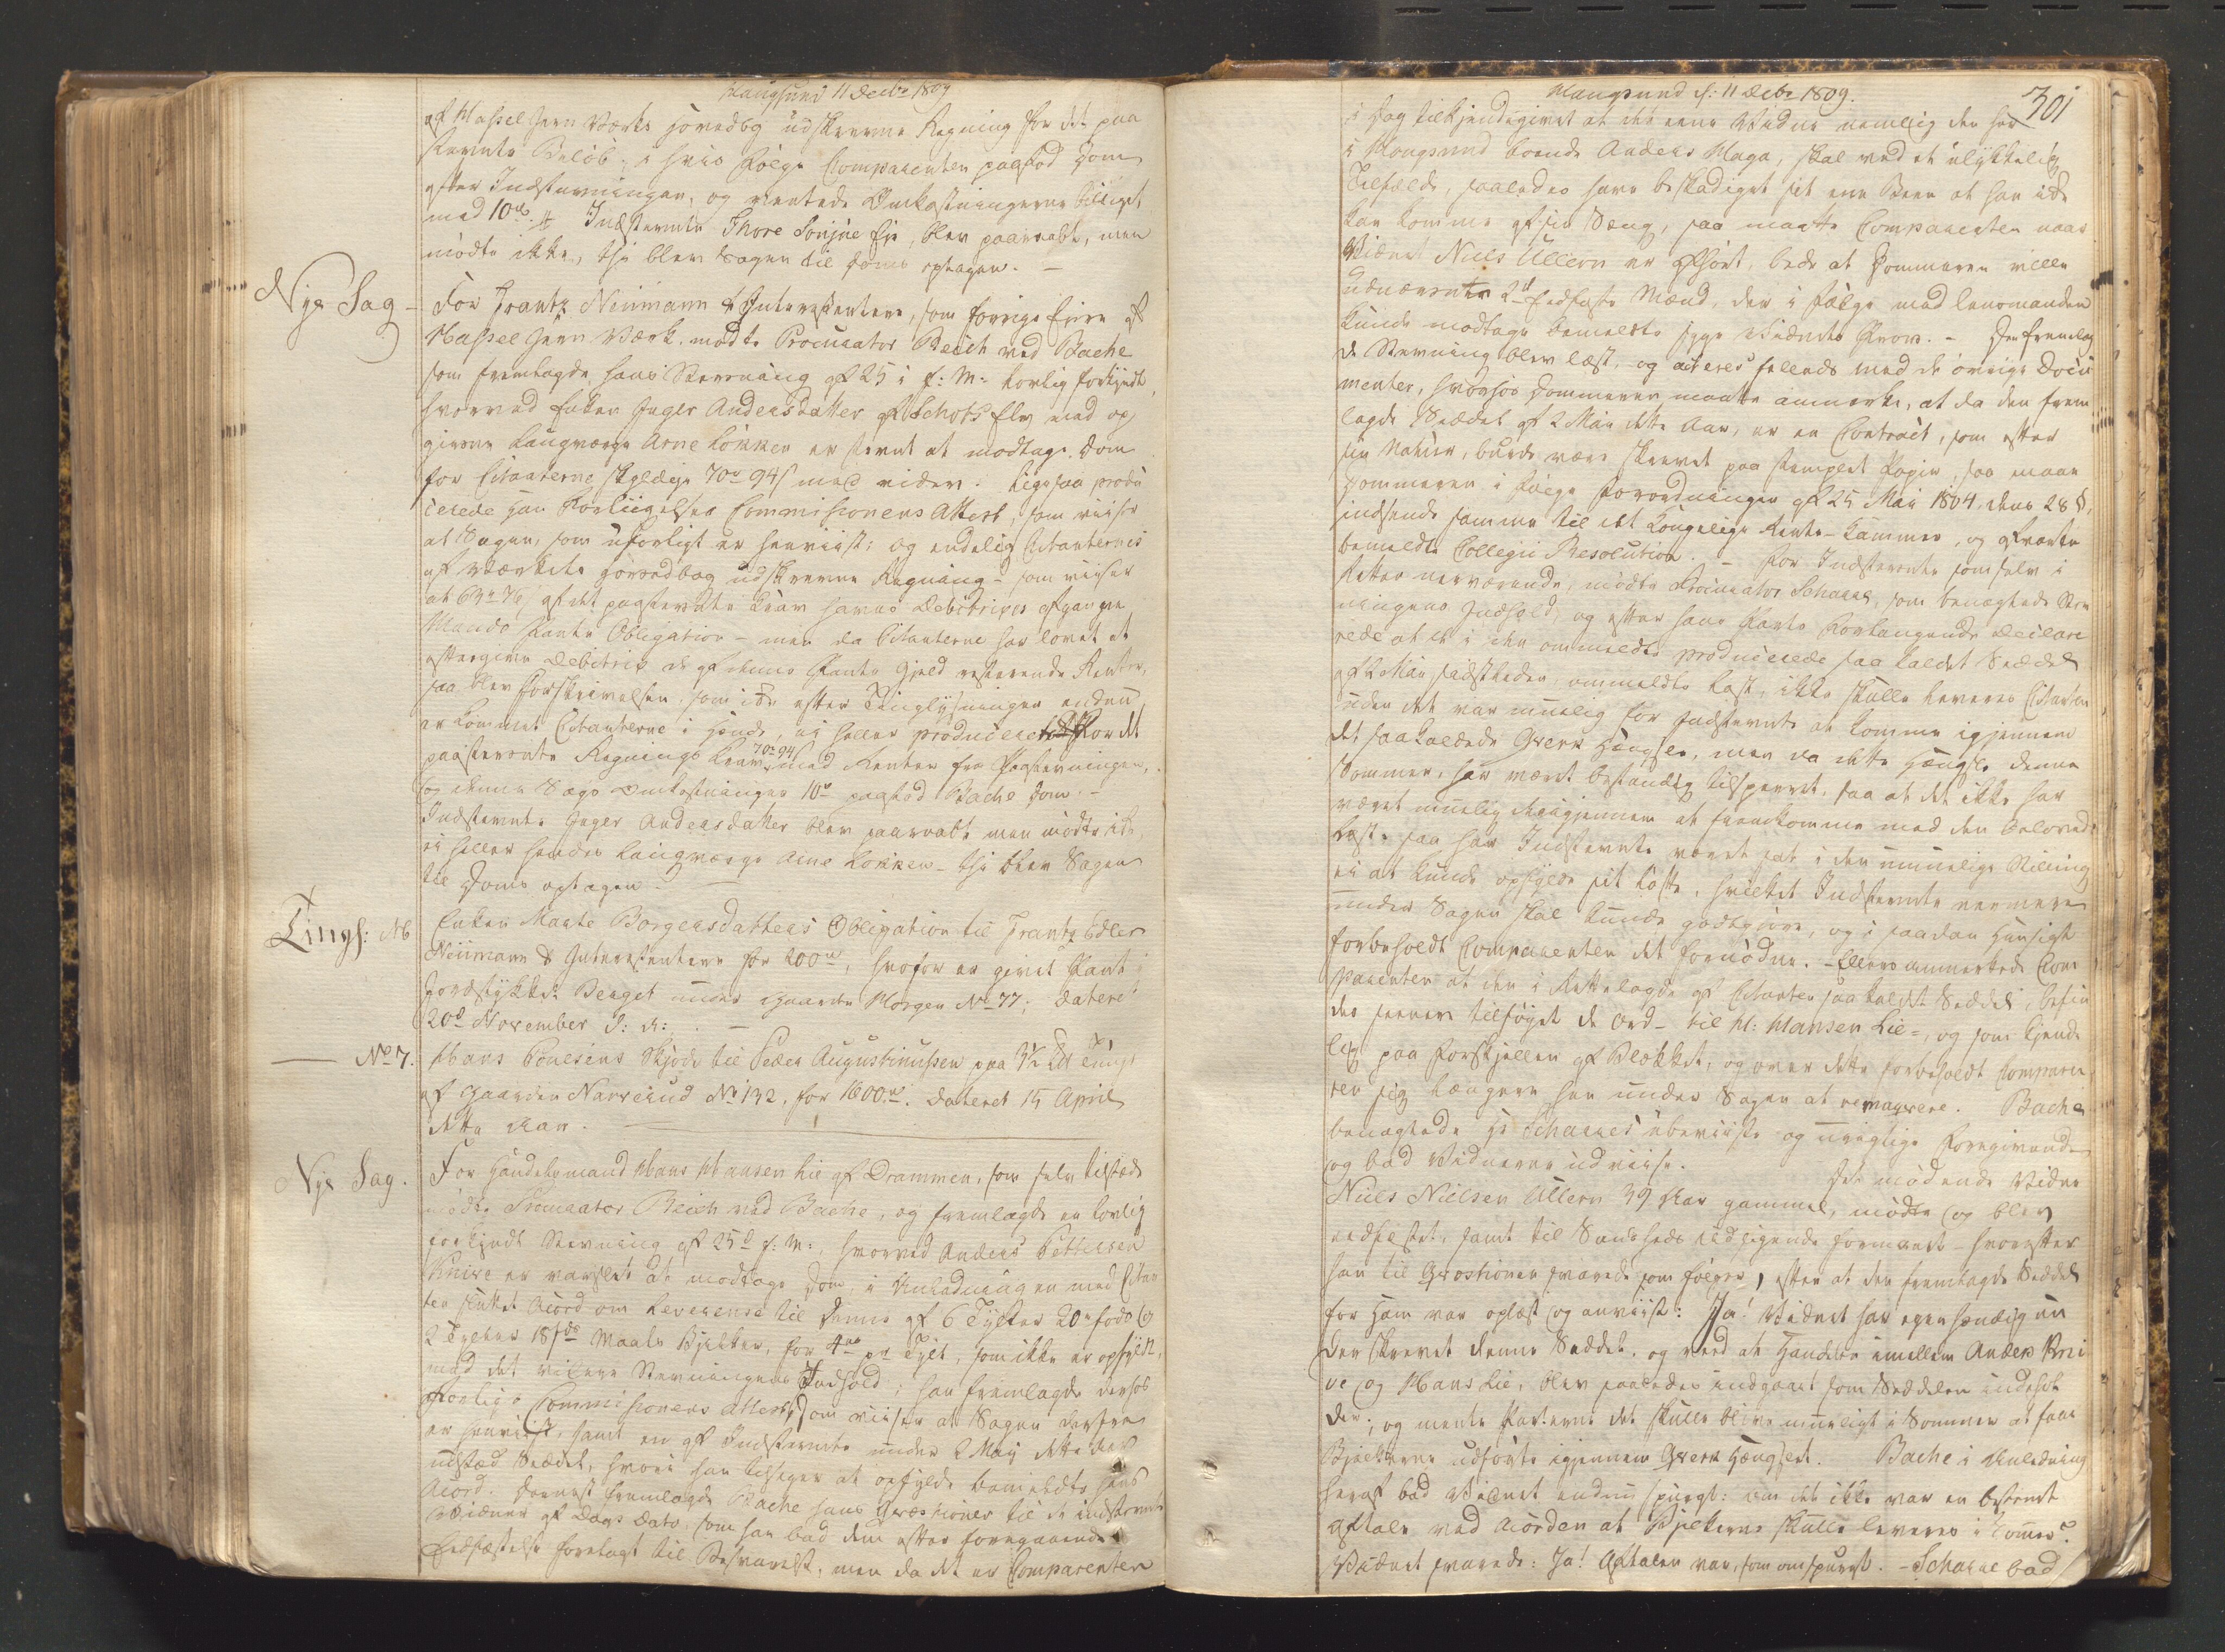 Haugsund 11 Decbr 1809
af Hassel Jern Værks Hovedbog udskrevne Regning for det paa
stevnte Beløb, i hvis Følge Comparenten paastod Dom
efter Indstevningen, og ventede Omkostningerne tillagt
med 10rd. Indstevnte Thore Eie, blev paaraabt, men
mødte ikke, thi blev Sagen til Doms optagen. —
Nye Sag - For Frantz Neumann & Interessentere, som forrige Eiere af
Hassel Jern Værk, mødte Procurator Beich ved Bache
som fremlagde hans Stevning af 25 i f: M: lovlig forkyndt
hvorved Enken Inger Andersdatter af Schots Elv med op
givne Laugværge Arne Løkken er stevnt at modtage Dom
for Citanterne skyldige 70rd 94s med videre. Ligesaa produ
cerede han Forligelses Commissionens Attest, som viiser
at Sagen, som uforligt er henviist; og endelig Citanternes
af Værkets Hovedbog udskrevne Regning - som viiser
at 69rd 76s af det paastevnte Krav haves Debitricis afgangne
Mands Pante Obligation - men da Citanterne har lovet at
eftergive Debitrix de af denne Pante Gjeld resterende Renter,
saa blev Forskrivelsen, som ikke efter Tinglysningen endnu
er kommet Citanterne i Hænde, ei heller produceret. For det
paastevnte Regnings Krav 70rd 94s med Renter fra Paastevningen,
og denne Sags Omkostninger 10rd paastod Bache Dom. —
Indstevnte Inger Andersdatter blev paaraabt men mødte ikke,
ei heller hendes Laugværge Arne Løkken - thi blev Sagen
til Doms optagen. —
Tingl: No 6 Enken Marte Borgersdatters Obligation til Frantz Edler
Neumann & Interessentere for 200rd, hvorfor er givet Pant i
Jordstykket Berget under Gaarden Horgen No 77; dateret
20d November d: A:. —
— No 7. Hans Poulsens Skjøde til Peder Augustinussen paa 3½ Ld Tunge
af Gaarden Narverud No 132, for 1600rd. dateret 15 April
dette Aar. —
Nye Sag. For Handelsmand Hans Hansen Lie af Drammen, som selv tilstæde
mødte Procurator Beich ved Bache, og fremlagde en lovlig
forkyndt Stevning af 25d f: M:, hvorved Anders Pettersen
Knive er varslet at modtage Dom i Anledning en med Citan
ten sluttet Acord om Leverence til denne af 6 Tylter 20 fods og
2 Tylter 18 fods Maals Bjelker, for 4rd pr Tylt, som ikke er opfyldt,
med det videre Stevningens Indhold; han fremlagde derhos
Forligs Commissionens Attest, som viiser at Sagen derfra
er henviist, samt en af Indstevnte under 2 Maij dette Aar
udsted Seddel, hvori han tilsiger at opfylde bemeldte hans
Acord. Dernæst fremlagde Bache hans Qvæstioner til de indstevnte
Vidner af Dags Dato, som han bad dem efter foregaaende
Eedfæstelse forelagt til Besvarelse, men da det er Comparenten
Haugsund d: 11 Decbr 1809.
301
i Dag tilkjendegivet at det eene Vidne nemlig den her
i Hougsund boende Anders Haga, skal ved et ulykkelig
Tilfælde, saaledes have beskadiget sit ene Been at han ikke
kan komme af sin Seng, saa maatte Comparenten naar
Vidnet Niels Ullern er afhørt, bede at Dommeren ville
udnævnte 2d eedfaste Mænd, der i Følge med Lensmanden
kunde modtage bemeldte syge Vidnets Prov. - Den fremlag
de Stevning blev læst, og acteres fellends med de øvrige Docu
menter, hvorhos Dommeren maatte anmerke, at da den frem
lagde Seddel af 2 Maij dette Aar, er en Contract, som efter
sin Natur, burde være skrevet paa stemplet Papir, saa maae
Dommeren i Følge Forordningen af 25 Maij 1804, dens 28 §,
indsende samme til det Kongelige Rente-Kammer, og afvente
bemeldte Collegii Resolution. - For Indstevnte som selv i
Retten nærværende, mødte Procurator Scharre, som benægtede Stev
ningens Indhold, og efter hans Parts Forlangende declare
rede at de i den ommeldte producerede saa kaldet Seddel
af 2 Maij sidstleden ommeldte Last, ikke skulle leveres Citanten
uden det var muelig for Indstevnte at komme igjennem
det saakaldede Qværk Hængsle, men da dette Hængsle denne
Sommer, har været bestandig tilsperret, saa at det ikke har
været muelig derigjennem at fremkomme med den belovede
Last, saa har Indstevnte været sat i den umuelige Stilling
ei at kunde opfylde sit Løfte, hvilket Indstevnte nærmere
under Sagen skal kunde godtgiøre, og i saadan Hensigt
forbeholdt Comparenten det fornødne. - Ellers anmerkede Com
parenten at den i Rettelagde af Citanten saa kaldet Seddel, befin
des senere tilføyet de Ord - til H: Hansen Lie -, og som kjende
lig paa Forskjellen af Blækket, og over dette forbeholdt Comparen
ten sig længere hen under Sagen at remarqvere. Bache
benægtede Hr Scharres ubeviiste og urigtige Foregivende
og bad Vidnerne udviist. Det mødende Vidne
Niels Nielsen Ullern 39 Aar gammel, mødte og blev
eedfestet, samt til Sandheds Udsigende formanet - hvorefter
han til Qvæstionen svarede som følger, efter at den fremlagde Seddel
for ham var oplæst og anviist: Ja! Vidnet har egenhændig un
derskrevet denne Seddel, og veed at Handelen imellem Anders Kni
ve og Hans Lie, blev saaledes indgaaet som Seddelen indehol
der; og mente Parterne det skulle blive mueligt i Sommer at faae
Bjelkerne udførte igjennem Qværk Hængslet. Bache i Anledning
heraf bad Vidnet endnu spurgt: om det ikke var en bestemt
Aftale ved Acorden at Bjelkerne skulle leveres i Sommer?
Vidnet svarede: Ja! Aftalen var, som omspurgt. - Scharre bad